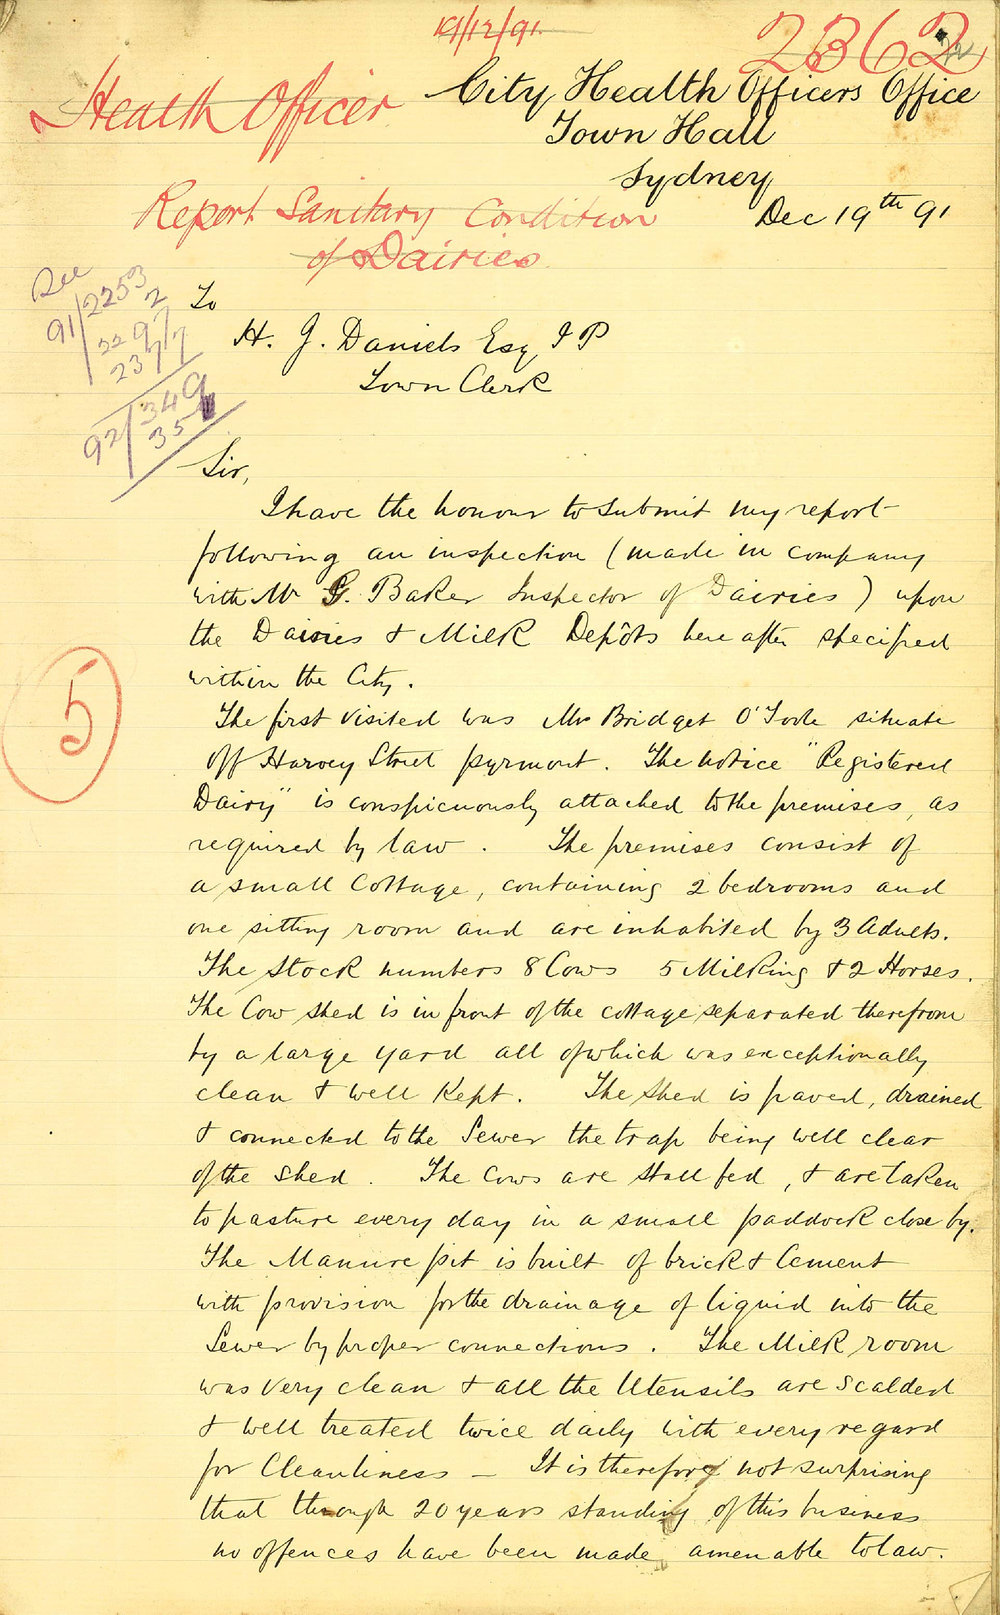 19/12/91
2362
Health Officer
City Health Officers Office
Town Hall
Sydney
Dec 19th 91
Report Sanitary Condition
of Dairies
See
91/2253
2297
2377
92/349
35
To
H. G. Daniels Esq J P
Town Clerk
Sir,
I have the honour to submit my report
following an inspection (made in company
with Mr G. Baker Inspector of Dairies) upon
the Dairies & Milk Depôts hereafter specified
within the City.
5
The first visited was Mrs Bridget O'Toole situate
off Harvey Street pyrmont. The notice "Registered
Dairy" is conspicuously attached to the premises, as
required by law. The premises consist of
a small Cottage, containing 2 bedrooms and
one sitting room and are inhabited by 3 Adults.
The Stock numbers 8 Cows 5 Milking & 2 Horses.
The Cow shed is in front of the cottage separated therefrom
by a large yard all of which was exceptionally
clean & well kept. The shed is paved, drained
& connected to the Sewer the trap being well clear
of the shed. The Cows are stall fed, & are taken
to pasture every day in a small paddock close by.
The Manure pit is built of brick & Cement
with provision for the drainage of liquid into the
Sewer by proper connections. The Milk room
was very clean & all the Utensils are scalded
& well treated twice daily with every regard
for Cleanliness — It is therefore not surprising
that through 20 years standing of this business
no offences have been made amenable to law.